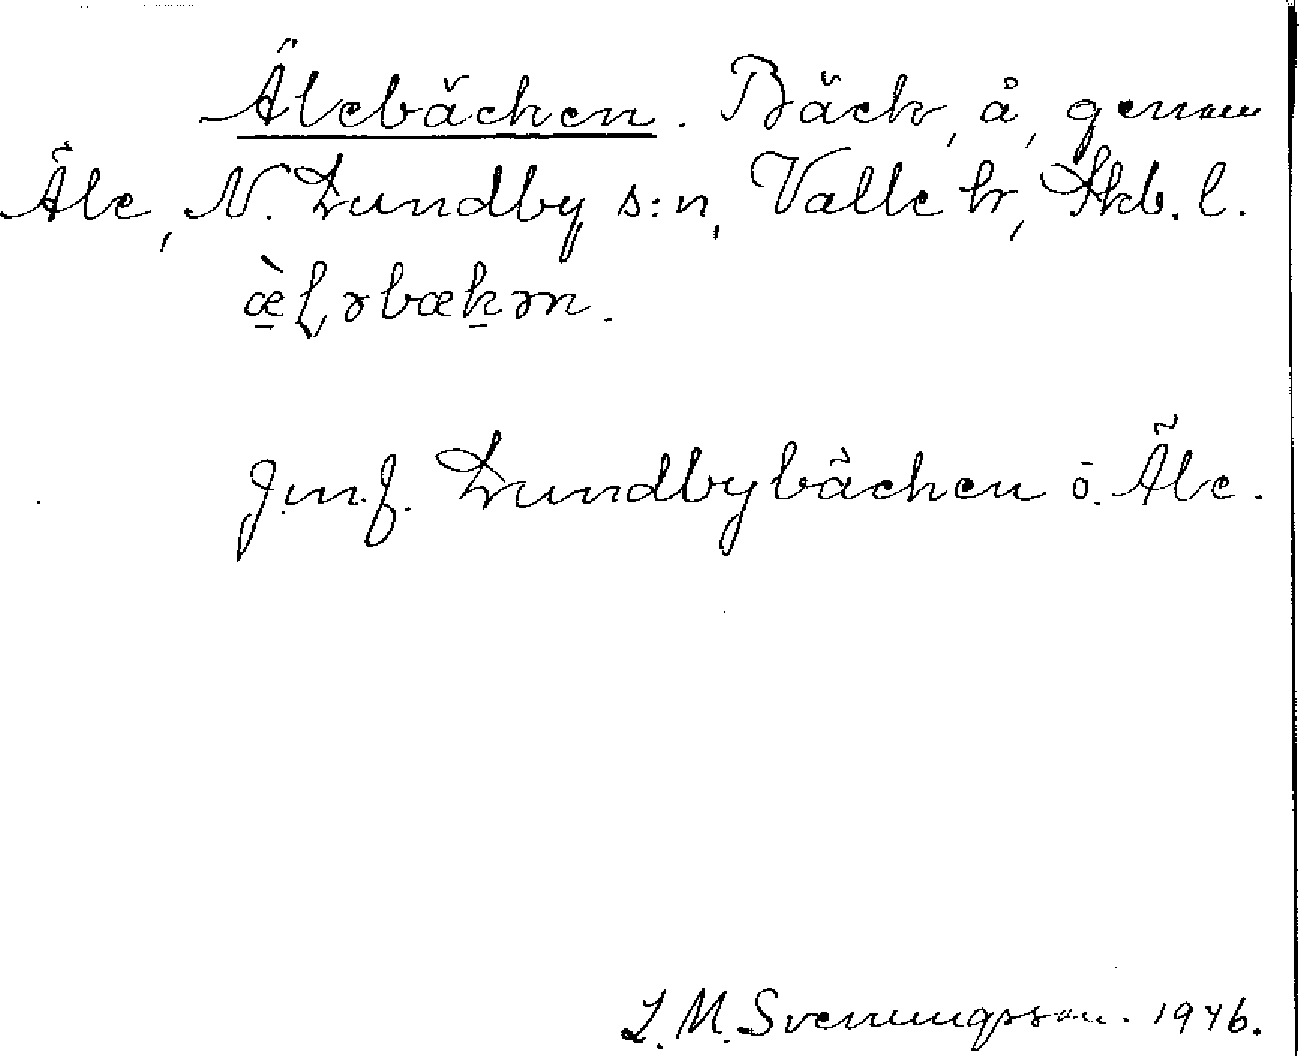 Älebäcken. Bäck, å, genom
Äle, N. Lundby s:n, Valle hr, Skb. l.
Jmf. Lundbybäcken o. Äle.
L. M. Svenungsson. 1946.